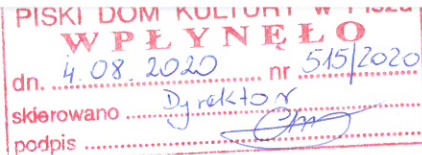 PISKI DOM KULTURY w Piszu
WPŁYNĘŁO
dn. 4.08.2020 nr 515/2020
skierowano Dyrektor
podpis